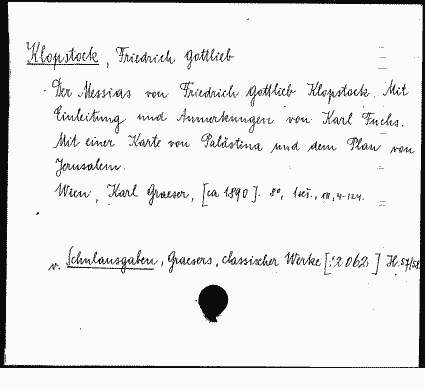 Klopstock, Friedrich Gottlieb
Der Messias von Friedrich Gottlieb Klopstock. Mit
Einleitung und Anmerkungen von Karl Fuchs.
Mit einer Karte von Palästina und dem Plan von
Jerusalem.
Wien, Karl Graeser, [ca 1890]. 8°, 1 seš., XII, 4-124.
v. Schulausgaben, Graesers, classischer Werke [:2062] H. 57/58